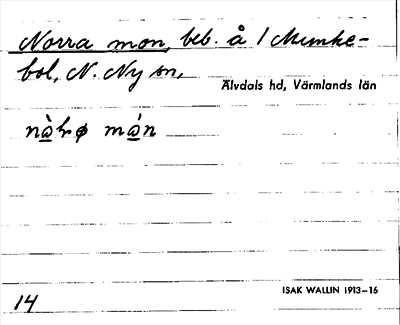 Norra mon, beb. å 1 Munke-
bol, N. Ny sn,
Älvdals hd, Värmlands län
mán
ISAK WALLIN 1913–16
14